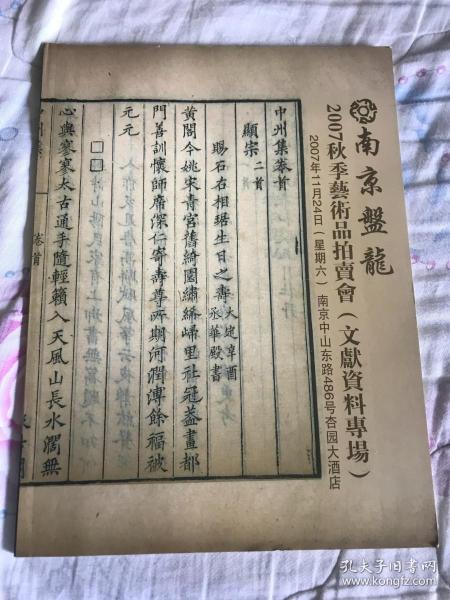 南京盤龍
2007秋季藝術品拍賣會（文獻資料專場）
2007年11月24日（星期六）南京中山东路486号杏园大酒店
中州集卷首
顯宗二首
賜石右相琚生日之壽 大定辛酉 承華殿書
黄閣今姚宋青宫舊綺園繡絺歸里社冠蓋畫都
門善訓懷師席深仁寄壽尊所期河潤溥餘福被
元元
心與寥寥太古通手隨輕籟入天風山長水濶無
卷首
孔夫子旧书网
www.kongfz.com